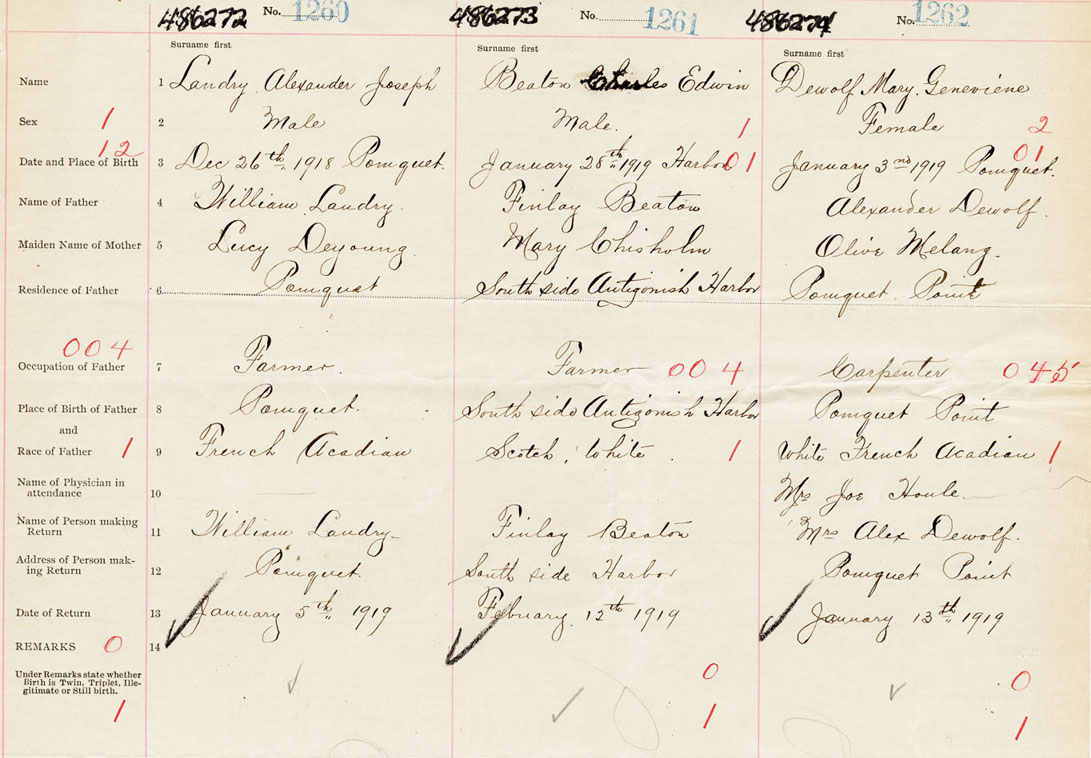 486272 No. 1260 486273 No. 1261 486274 No. 1262
Surname first Surname first Surname first
Name 1 Landry Alexander Joseph Beaton Charles Edwin Dewolf Mary Genevieve
Sex 1 2 Male Male. 1 Female 2
12 01 01
Date and Place of Birth 3 Dec 26th 1918 Pomquet. January 28th 1919 Harbor January 3nd 1919 Pomquet.
Name of Father 4 William Landry. Finlay Beaton Alexander Dewolf.
Maiden Name of Mother 5 Lucy Deyoung. Mary Chisholm Olive Melang.
Residence of Father 6 Pomquet South side Antigonish Harbor Pomquet Point
004
Occupation of Father 7 Farmer. Farmer 004 Carpenter 045
Place of Birth of Father 8 Pomquet. South side Antigonish Harbor Pomquet Point
and
Race of Father 1 9 French Acadian Scotch, White. 1 White French Acadian 1
Name of Physician in
attendance 10 Mrs Joe Houle.
Name of Person making
Return 11 William Landry Finlay Beaton Mrs Alex Dewolf.
Address of Person mak-
ing Return 12 Pomquet. South side Harbor Pomquet Point
Date of Return 13 January 5th 1919 February 12th 1919 January 13th 1919
REMARKS 0 14
Under Remarks state whether
Birth is Twin, Triplet, Ille-
gitimate or Still birth.
0 0
1 1 1